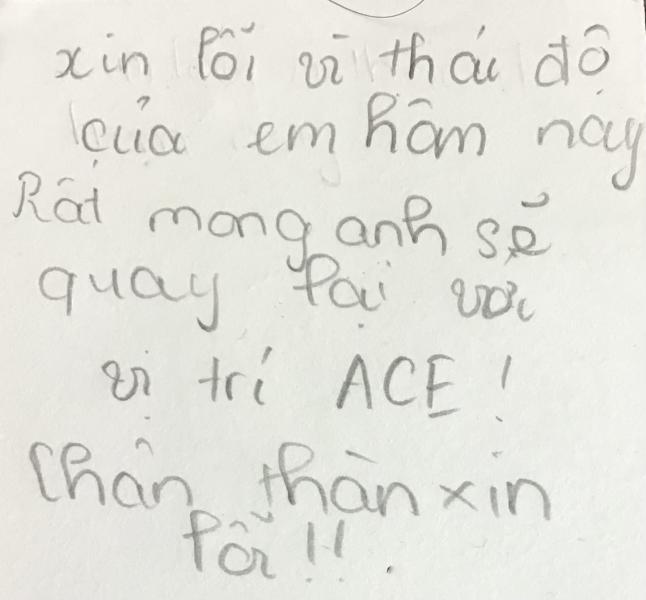 xin lỗi vì thái độ
của em hôm nay
Rất mong anh sẽ
quay lại với
vị trí ACE !
Chân thành xin
lỗi !! .